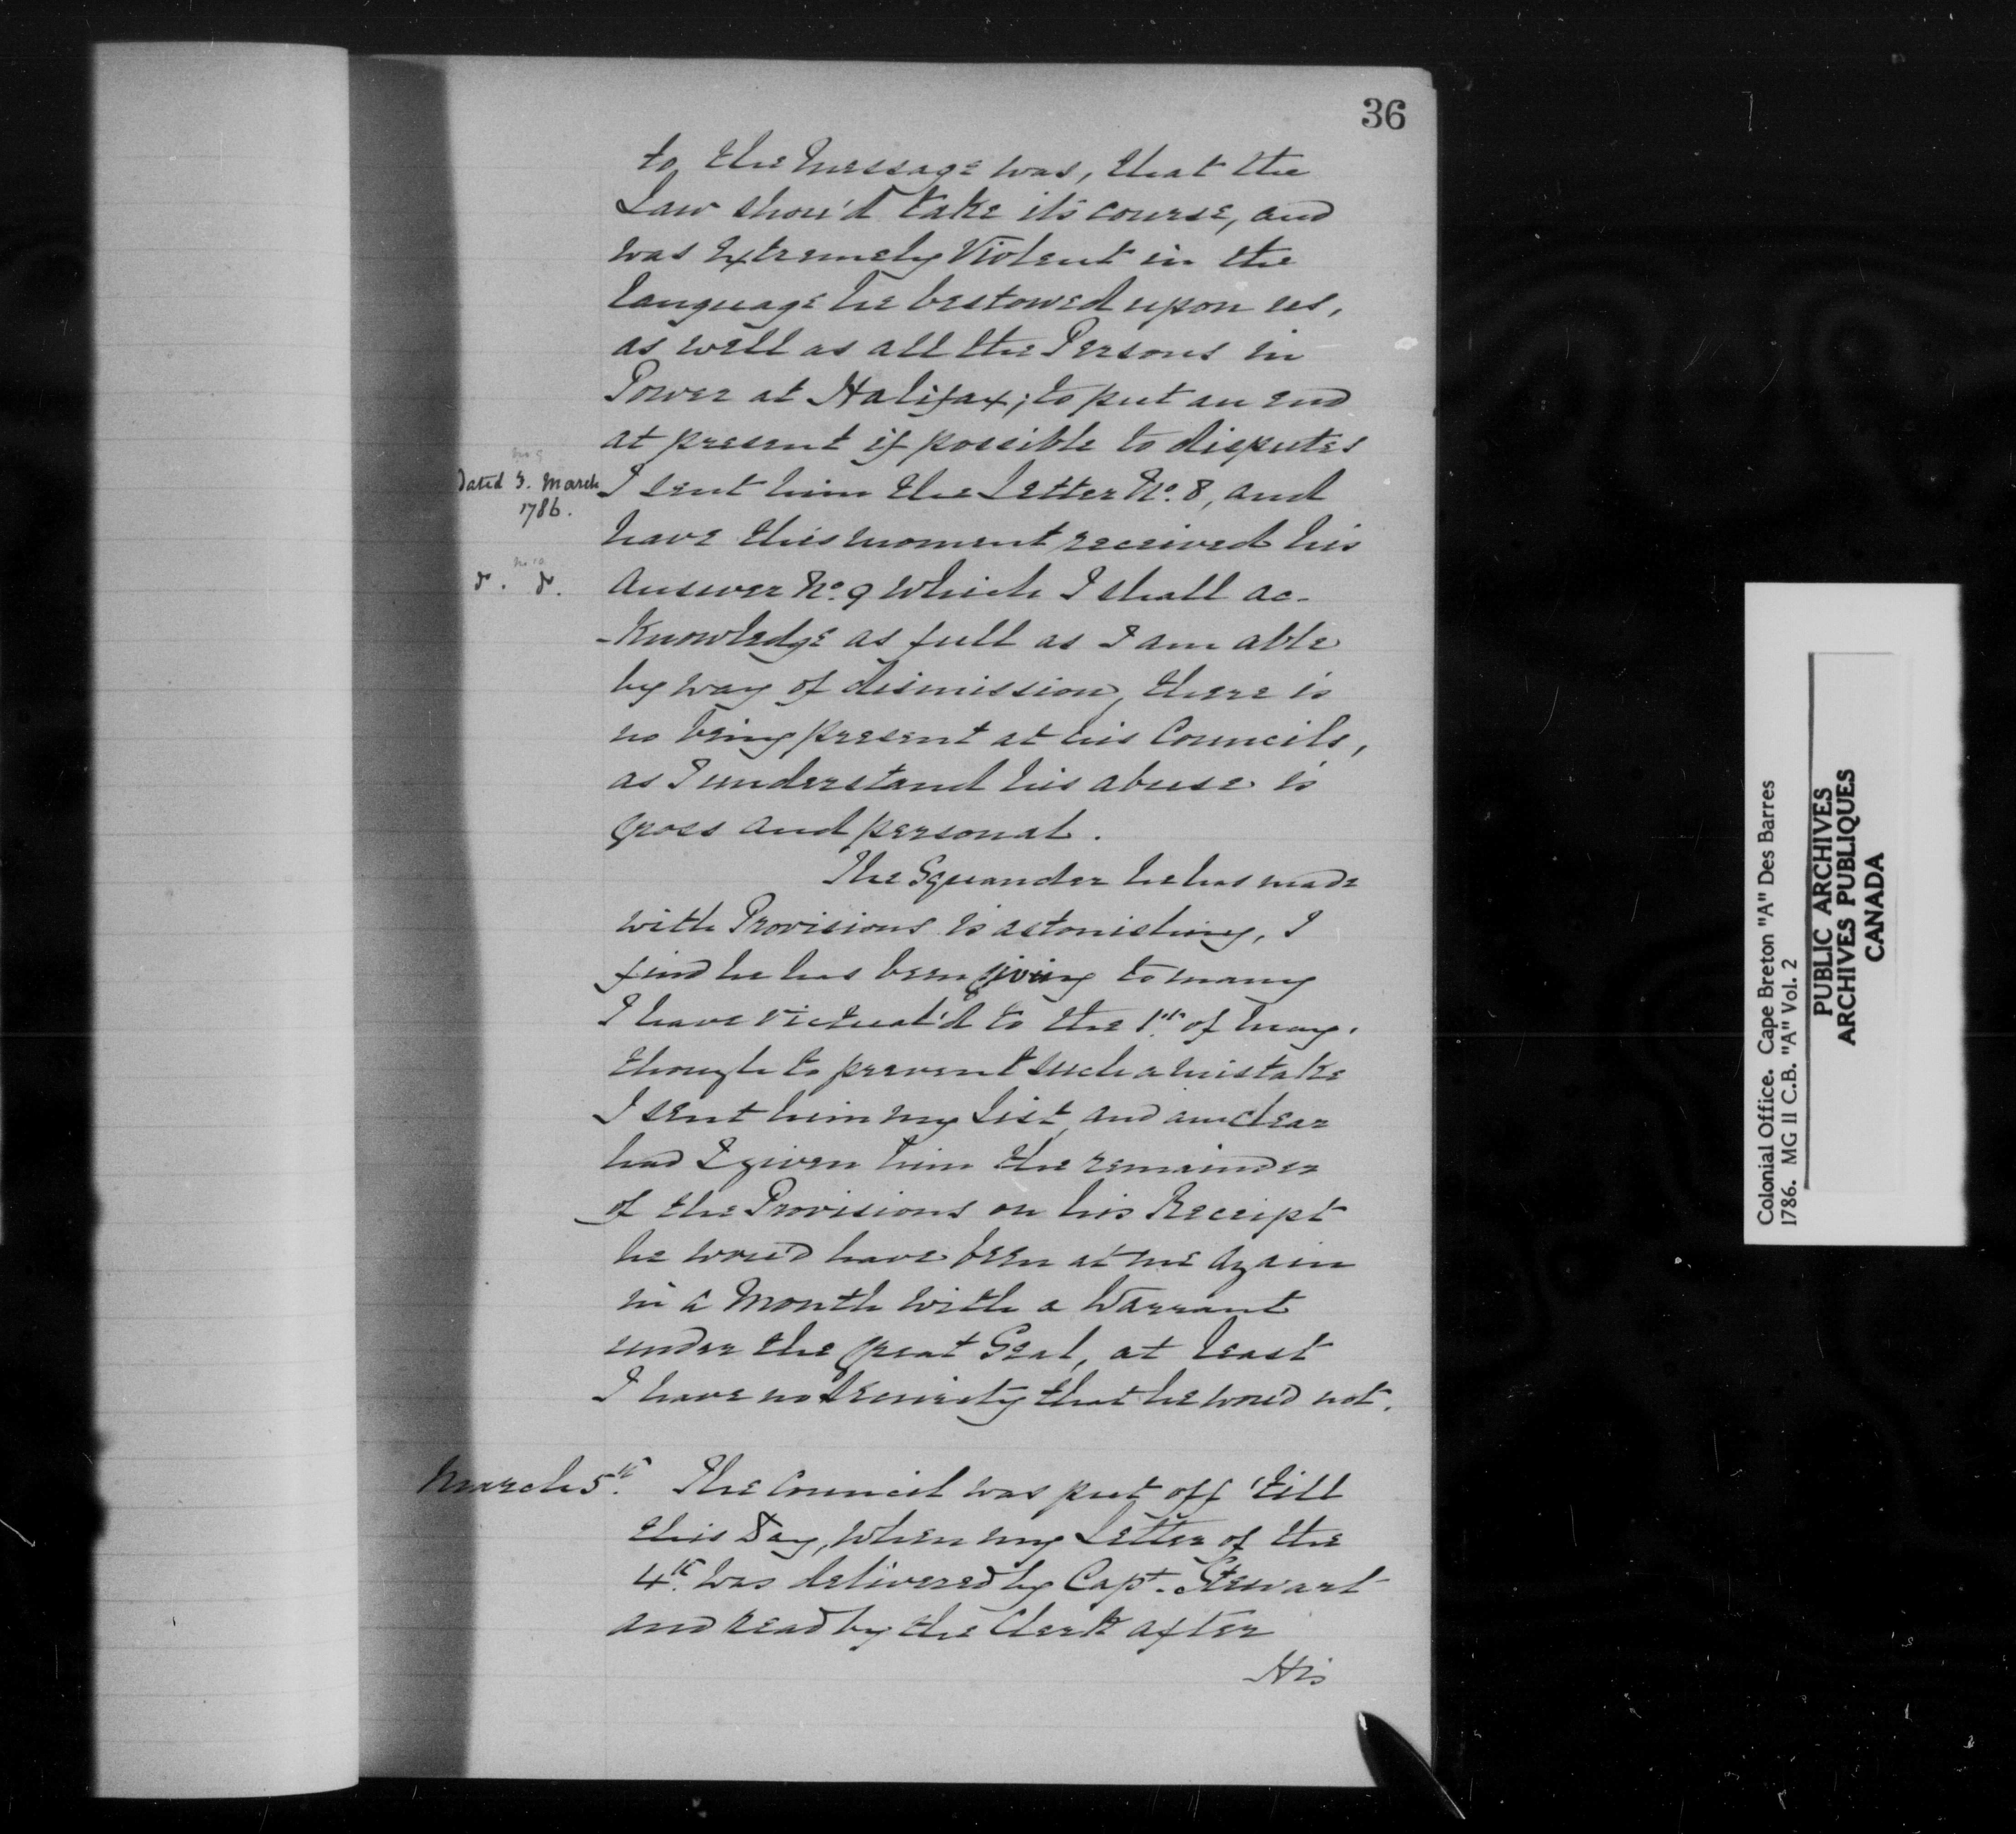 36
to the Message was, that the
Law shou'd take its course, and
was extremely Violent in the
language he bestowed upon us,
as well as all the Persons in
Power at Halifax; to put an end
at present if possible to disputes
No 9
Dated 3. March
1786.
I sent him the Letter No. 8, and
have this moment received his
No 10
do. do.
answer No. 9 which I shall ac-
-knowledge as full as I am able
by way of dismission, there is
no being present at his Councils,
as I understand his abuse is
gross and personal.
The Squander he has made
with Provisions is astonishing, I
find he has been giving to many
I have victual'd to the 1st. of May.
though to prevent such a mistake
I sent him my List, and am clear
had I given him the remainder
of the Provisions on his Receipt
he wou'd have been at me again
in a Month with a Warrant
under the great Seal, at least
I have no security that he wou'd not.
March 5th. The Council was put off 'till
this Day, when my Letter of the
4th. was delivered by Capt. Stewart
and read by the Clerk after
His
Colonial Office. Cape Breton "A" Des Barres
1786. MG II C.B. "A" Vol. 2
PUBLIC ARCHIVES
ARCHIVES PUBLIQUES
CANADA